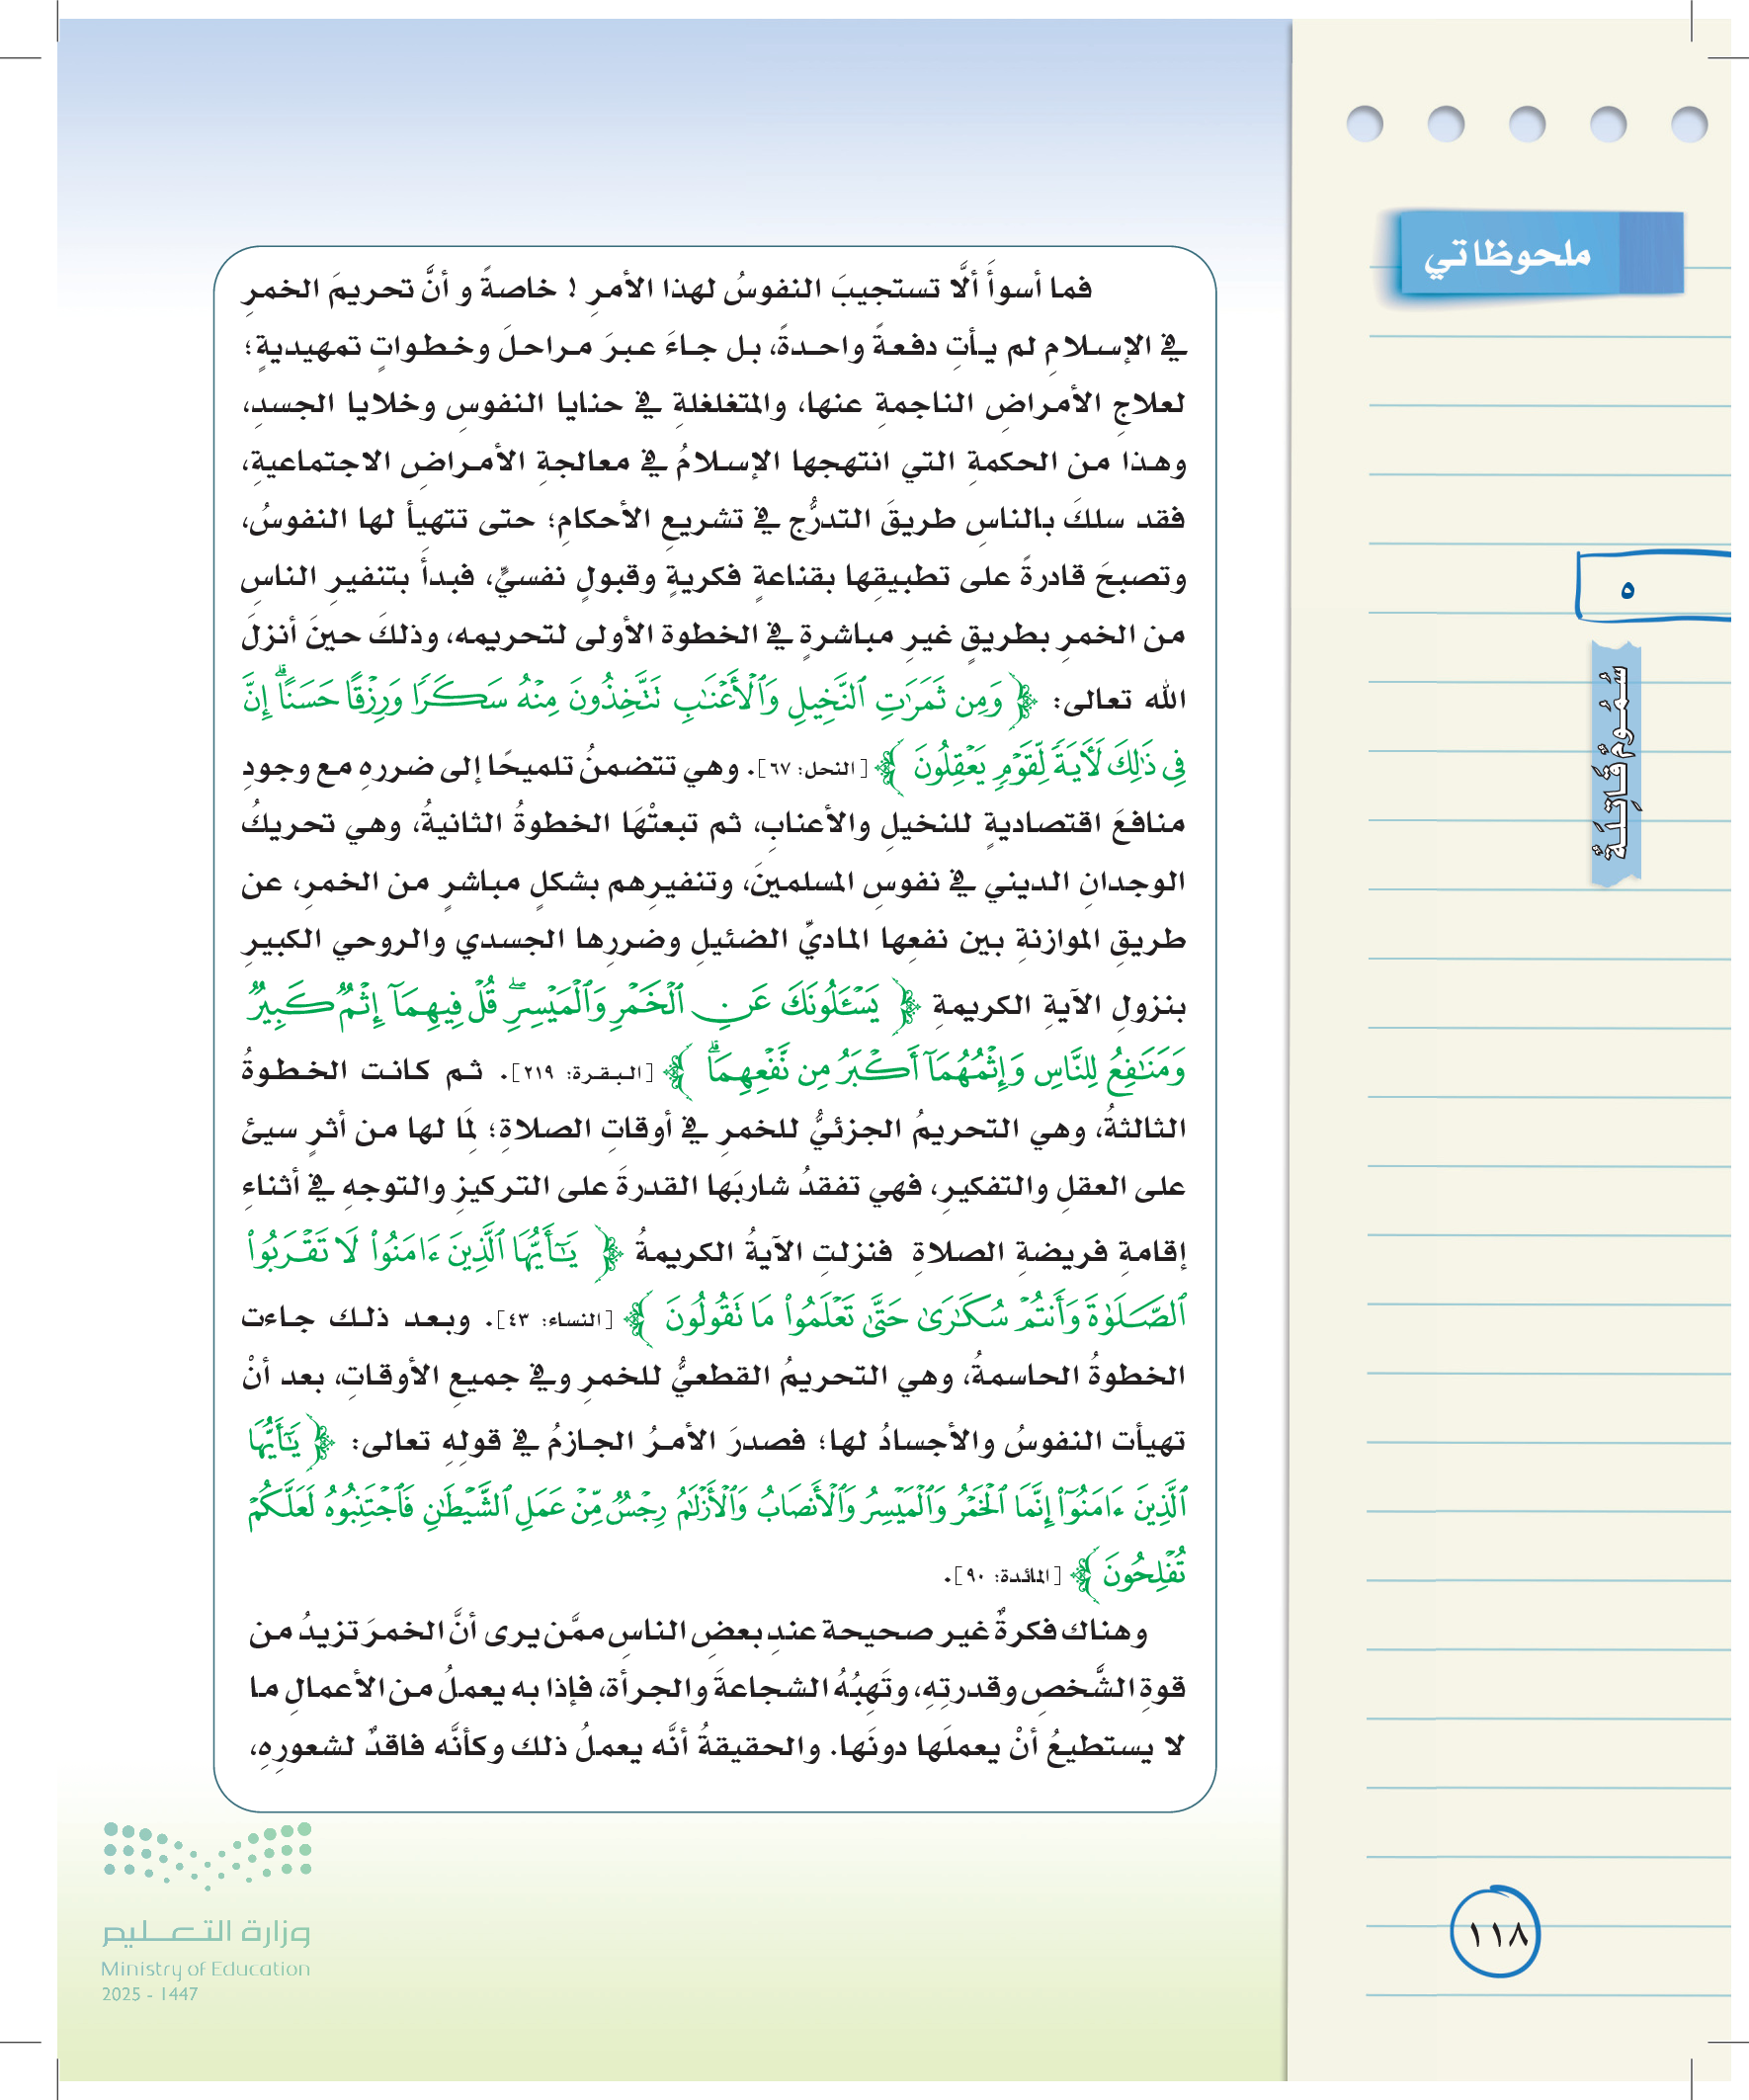 ملحوظاتي
٥
سُمُومٌ قَاتِلَةٌ
فما أسوأَ ألَّا تستجيبَ النفوسُ لهذا الأمرِ ! خاصةً و أنَّ تحريمَ الخمرِ
في الإسلامِ لم يأتِ دفعةً واحدةً، بل جاءَ عبرَ مراحلَ وخطواتٍ تمهيديةٍ؛
لعلاجِ الأمراضِ الناجمةِ عنها، والمتغلغلةِ في حنايا النفوسِ وخلايا الجسدِ،
وهذا من الحكمةِ التي انتهجها الإسلامُ في معالجةِ الأمراضِ الاجتماعيةِ،
فقد سلكَ بالناسِ طريقَ التدرُّج في تشريعِ الأحكامِ؛ حتى تتهيأ لها النفوسُ،
وتصبحَ قادرةً على تطبيقِها بقناعةٍ فكريةٍ وقبولٍ نفسيٍّ، فبدأَ بتنفيرِ الناسِ
من الخمرِ بطريقٍ غيرِ مباشرةٍ في الخطوة الأولى لتحريمه، وذلكَ حينَ أنزلَ
الله تعالى: ﴿ وَمِن ثَمَرَٰتِ ٱلنَّخِيلِ وَٱلْأَعْنَٰبِ تَتَّخِذُونَ مِنْهُ سَكَرًا وَرِزْقًا حَسَنًا ۗ إِنَّ
فِى ذَٰلِكَ لَأَيَةً لِّقَوْمٍ يَعْقِلُونَ ﴾ [النحل: ٦٧]. وهي تتضمنُ تلميحًا إلى ضررهِ مع وجودِ
منافعَ اقتصاديةٍ للنخيلِ والأعنابِ، ثم تبعتْهَا الخطوةُ الثانيةُ، وهي تحريكُ
الوجدانِ الديني في نفوسِ المسلمينَ، وتنفيرِهم بشكلٍ مباشرٍ من الخمرِ، عن
طريقِ الموازنةِ بين نفعِها الماديِّ الضئيلِ وضررِها الجسدي والروحي الكبيرِ
بنزولِ الآيةِ الكريمةِ ﴿ يَسْـَٔلُونَكَ عَنِ ٱلْخَمْرِ وَٱلْمَيْسِرِ ۖ قُلْ فِيهِمَآ إِثْمٌ كَبِيرٌ
وَمَنَٰفِعُ لِلنَّاسِ وَإِثْمُهُمَآ أَكْبَرُ مِن نَّفْعِهِمَا ۗ ﴾ [البقرة: ٢١٩]. ثم كانت الخطوةُ
الثالثةُ، وهي التحريمُ الجزئيُّ للخمرِ في أوقاتِ الصلاةِ؛ لِمَا لها من أثرٍ سيئ
على العقلِ والتفكيرِ، فهي تفقدُ شاربَها القدرةَ على التركيزِ والتوجهِ في أثناءِ
إقامةِ فريضةِ الصلاةِ فنزلتِ الآيةُ الكريمةُ ﴿ يَـٰٓأَيُّهَا ٱلَّذِينَ ءَامَنُوا۟ لَا تَقْرَبُوا۟
ٱلصَّلَوٰةَ وَأَنتُمْ سُكَٰرَىٰ حَتَّىٰ تَعْلَمُوا۟ مَا تَقُولُونَ ﴾ [النساء: ٤٣]. وبعد ذلك جاءت
الخطوةُ الحاسمةُ، وهي التحريمُ القطعيُّ للخمرِ وفي جميعِ الأوقاتِ، بعد أنْ
تهيأت النفوسُ والأجسادُ لها؛ فصدرَ الأمرُ الجازمُ في قولِهِ تعالى: ﴿ يَـٰٓأَيُّهَا
ٱلَّذِينَ ءَامَنُوٓا۟ إِنَّمَا ٱلْخَمْرُ وَٱلْمَيْسِرُ وَٱلْأَنصَابُ وَٱلْأَزْلَٰمُ رِجْسٌ مِّنْ عَمَلِ ٱلشَّيْطَٰنِ فَٱجْتَنِبُوهُ لَعَلَّكُمْ
تُفْلِحُونَ ﴾ [المائدة: ٩٠].
وهناك فكرةٌ غير صحيحة عندِ بعضِ الناسِ ممَّن يرى أنَّ الخمرَ تزيدُ من
قوةِ الشَّخصِ وقدرتِهِ، وتَهِبُهُ الشجاعةَ والجرأة، فإذا به يعملُ من الأعمالِ ما
لا يستطيعُ أنْ يعملَها دونَها. والحقيقةُ أنَّه يعملُ ذلك وكأنَّه فاقدٌ لشعورِهِ،
وزارة التعليم
Ministry of Education
2025 - 1447
١١٨